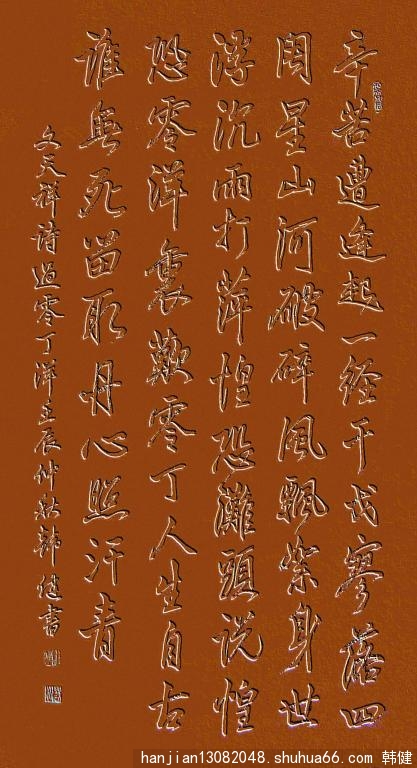 辛苦遭逢起一經干戈寥落四
周星山河破碎風飄絮身世
浮沉雨打萍惶恐灘頭說惶
恐零洋裏歎零丁人生自古
誰無死留取丹心照汗青
文天祥詩過零丁洋壬辰仲秋韓健書
hanjian13082048.shuhua66.com 韩健